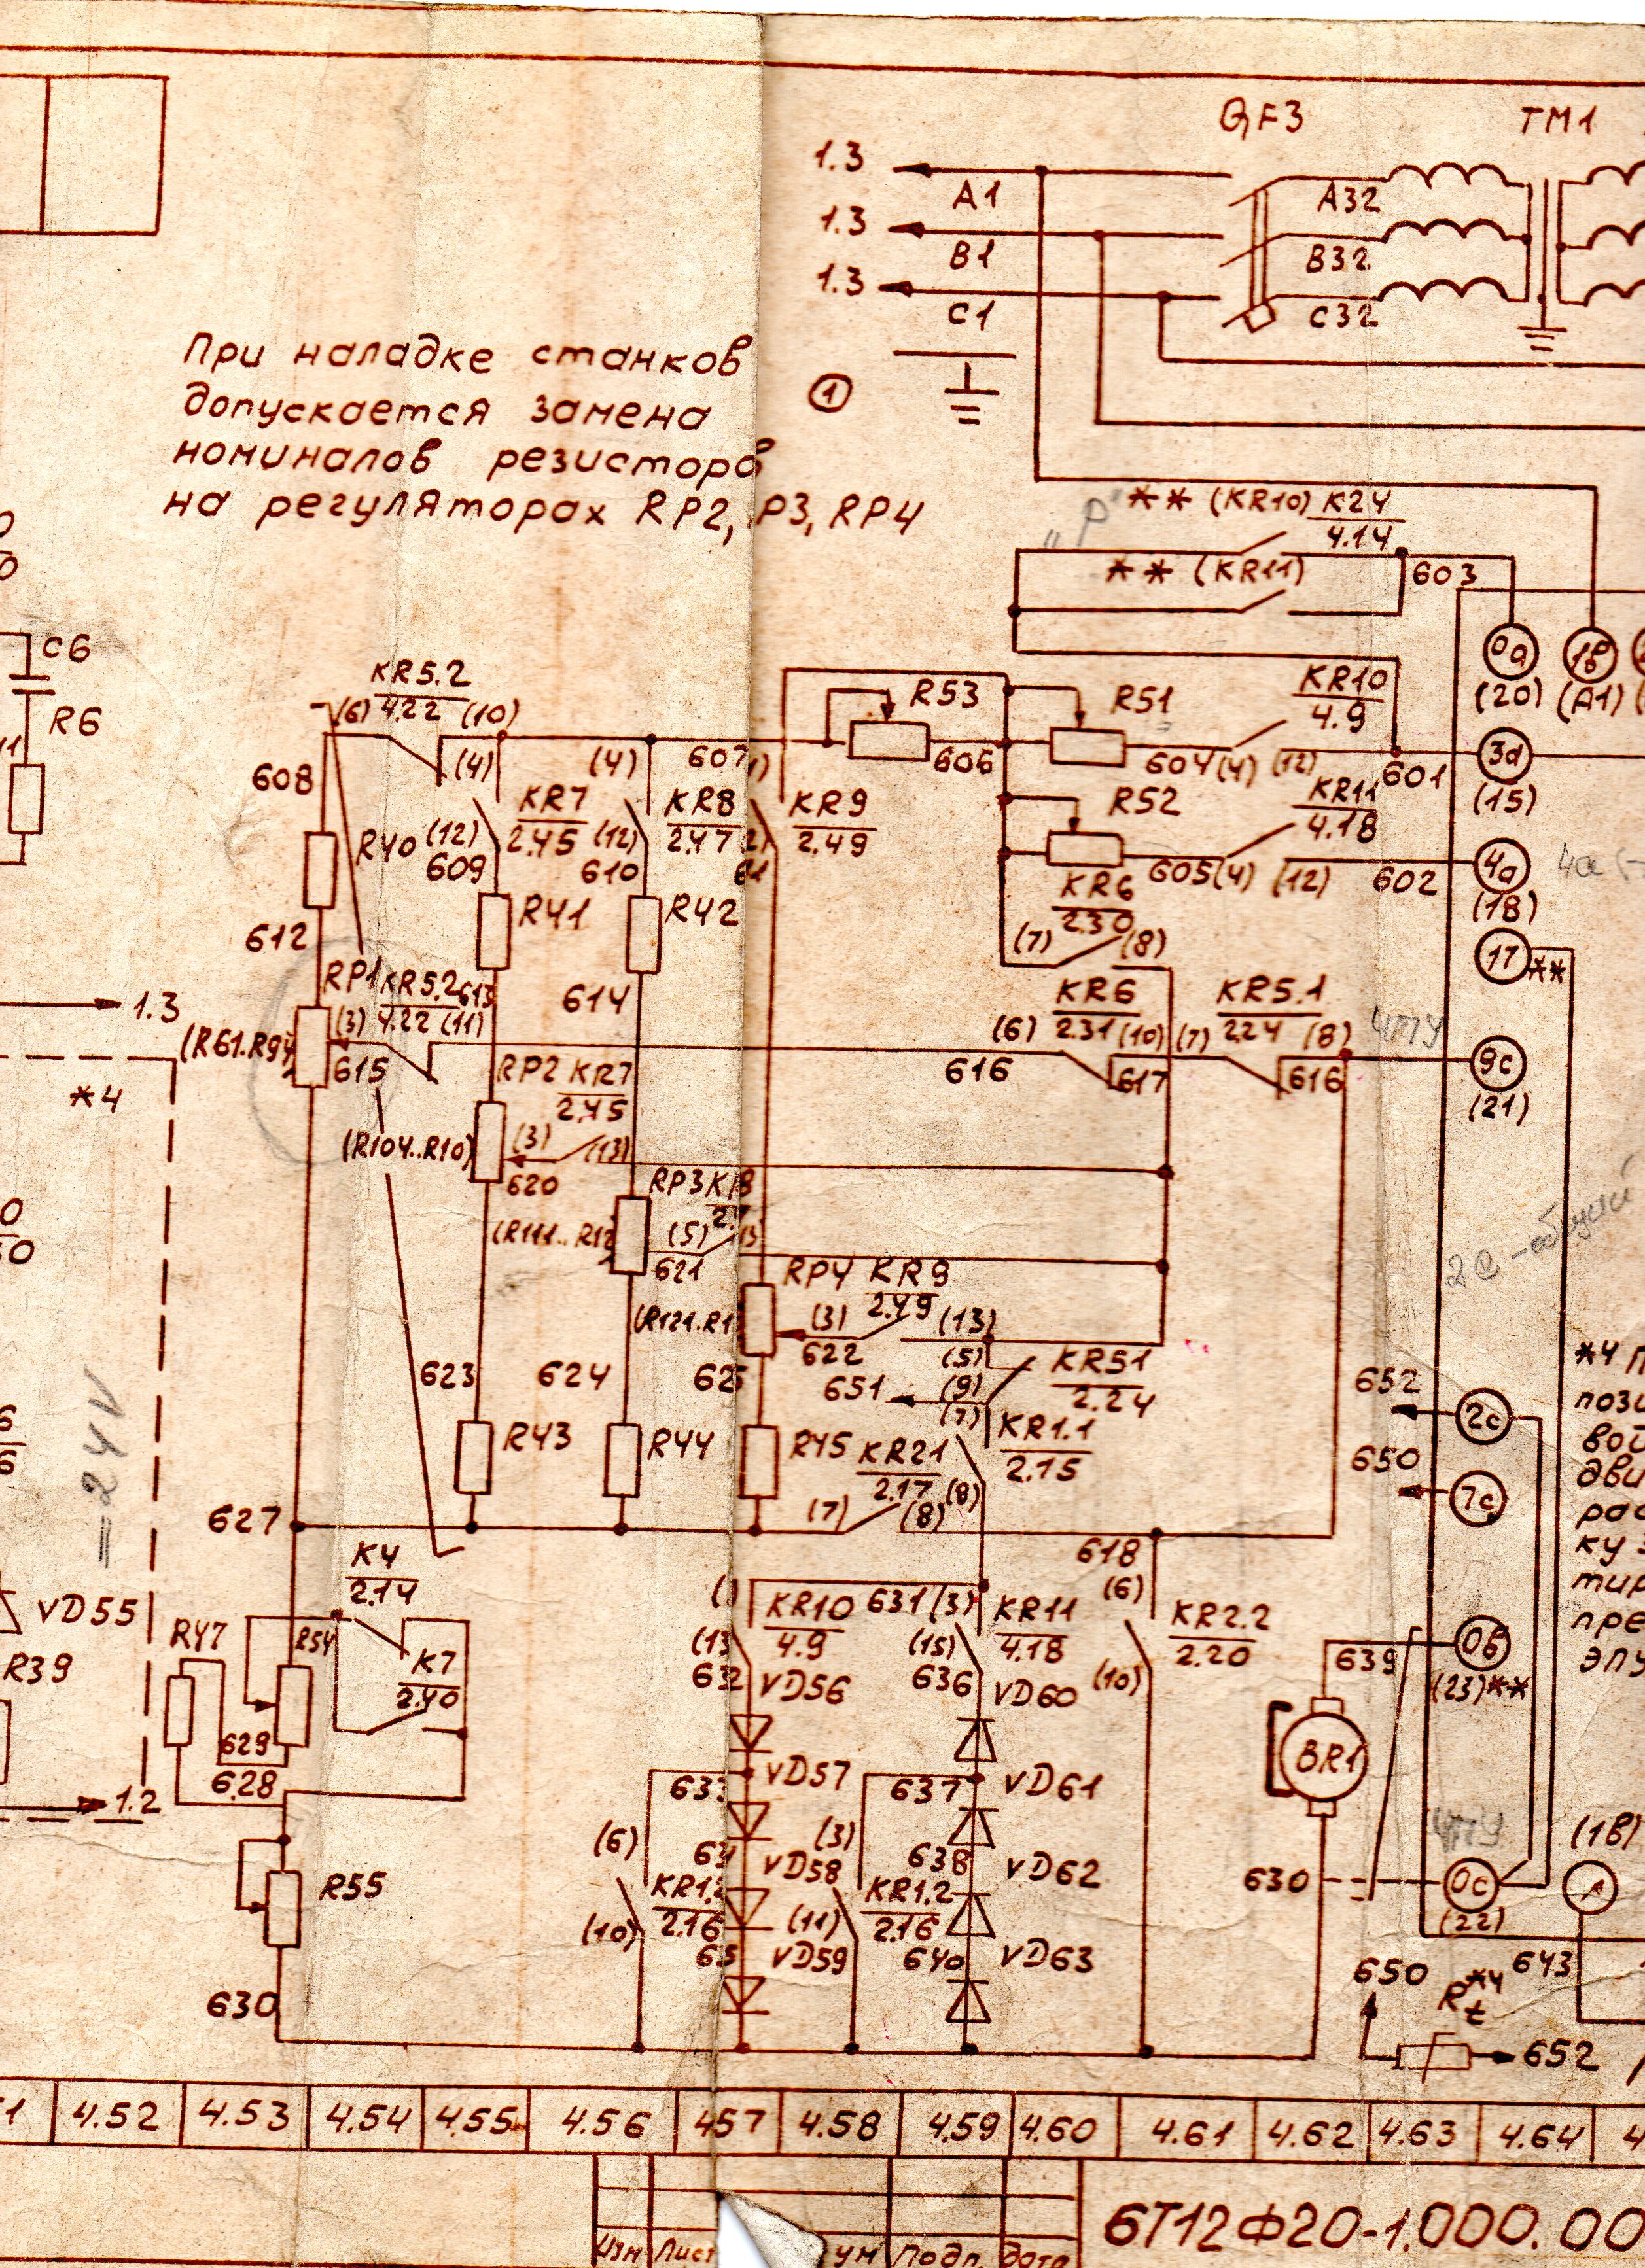 QF3 TM1
1.3
A1 A32
1.3
B1 B32
1.3
C1 C32
1
При наладке станков
допускается замена
номиналов резисторов
на регуляторах RP2, P3, RP4
"Р" ** (KR10) K24
4.14
** (KR11) 603
0a 1в
(20) (A1)
C6
R6
KR5.2
4.22
(6) (10)
R53 R51 KR10
4.9
608 (4) (4) 607 606 604 (4) (12) 601
3d
(15)
KR7
2.45
KR8
2.47
KR9
2.49
R52 KR11
4.18
R40 (12) (12)
609 610
605 (4) (12) 602
4a
(18)
4a
R41 R42
KR6
2.30
(7) (8)
612
17 **
RP1 KR5.2 613
4.22
(3) (11)
614
1.3
(R61.R94
615
*4
KR6
2.31
(6) (10)
KR5.1
2.24
(7) (8)
4ПУ
616 617 616
9c
(21)
RP2 KR7
2.45
(3) (13)
(R104..R10)
620
RP3
(5)
(R111..R12
621
2c - общий
RP4 KR9
2.49
(3) (13)
(R121.R1
622
(5) KR51
2.24
651 (9)
(7)
623 624 625
652 2c
650 7c
*4 П
пози
вой
дви
рас
ку з
тир
пре
ЭПУ
=24V
R43 R44 R45
KR21
2.17
(7) (8)
KR1.1
2.15
(8)
627
618
K4
2.14
VD55
R39
R47 R54
K7
2.40
629
628
1.2
KR10
4.9
631 (3) KR11
4.18
(6) KR2.2
2.20
(13 (15) (10)
632 VD56 636 VD60
639 0б
(23)**
BR1
633 VD57 637 VD61
(6) (3)
VD58 638 VD62
KR1.2
2.16
(10)
KR1.2
2.16
(11)
VD59 640 VD63
4ПУ
630 0c
(22)
(1в)
A
R55
630
650 Rt *4 643
652
4.52 4.53 4.54 4.55 4.56 457 4.58 4.59 4.60 4.61 4.62 4.63 4.64
6Т12Ф20-1.000.00
Изм Лист ум Подп. Дата